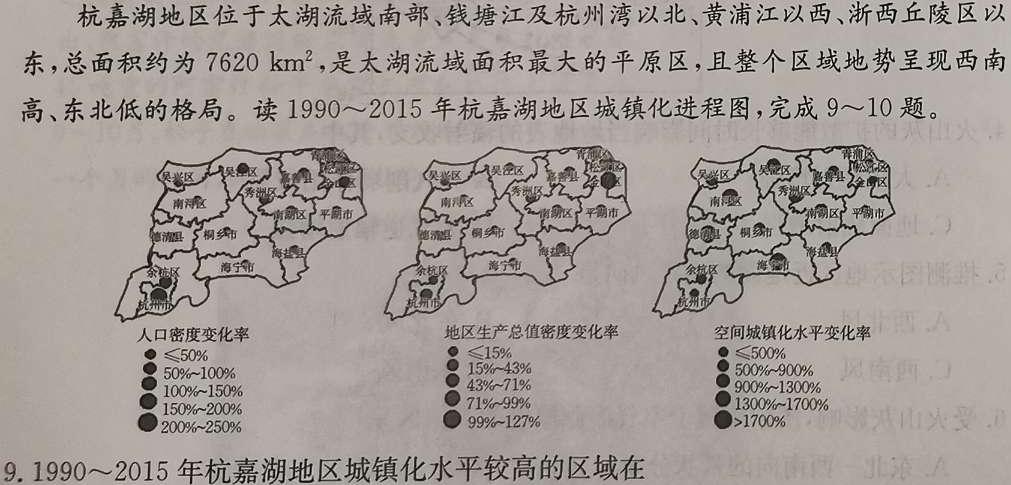 杭嘉湖地区位于太湖流域南部、钱塘江及杭州湾以北、黄浦江以西、浙西丘陵区以
东,总面积约为 7620 km²,是太湖流域面积最大的平原区,且整个区域地势呈现西南
高、东北低的格局。读 1990～2015 年杭嘉湖地区城镇化进程图,完成 9～10 题。
青浦区
松江区
吴兴区
吴江区
嘉善县
金山区
秀洲区
南浔区
南湖区
平湖市
德清县
桐乡市
海盐县
海宁市
余杭区
杭州市
人口密度变化率
≤50%
50%~100%
100%~150%
150%~200%
200%~250%
青浦区
松江区
吴兴区
吴江区
嘉善县
金山区
秀洲区
南浔区
南湖区
平湖市
德清县
桐乡市
海盐县
海宁市
余杭区
杭州市
地区生产总值密度变化率
≤15%
15%~43%
43%~71%
71%~99%
99%~127%
青浦区
松江区
吴兴区
吴江区
嘉善县
金山区
秀洲区
南浔区
南湖区
平湖市
德清县
桐乡市
海盐县
海宁市
余杭区
杭州市
空间城镇化水平变化率
≤500%
500%~900%
900%~1300%
1300%~1700%
>1700%
9. 1990～2015 年杭嘉湖地区城镇化水平较高的区域在